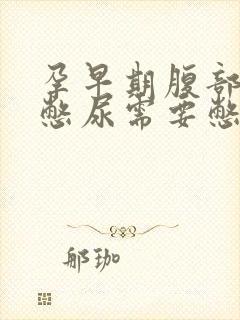 孕早期腹部
憋尿需要憋
郍珈